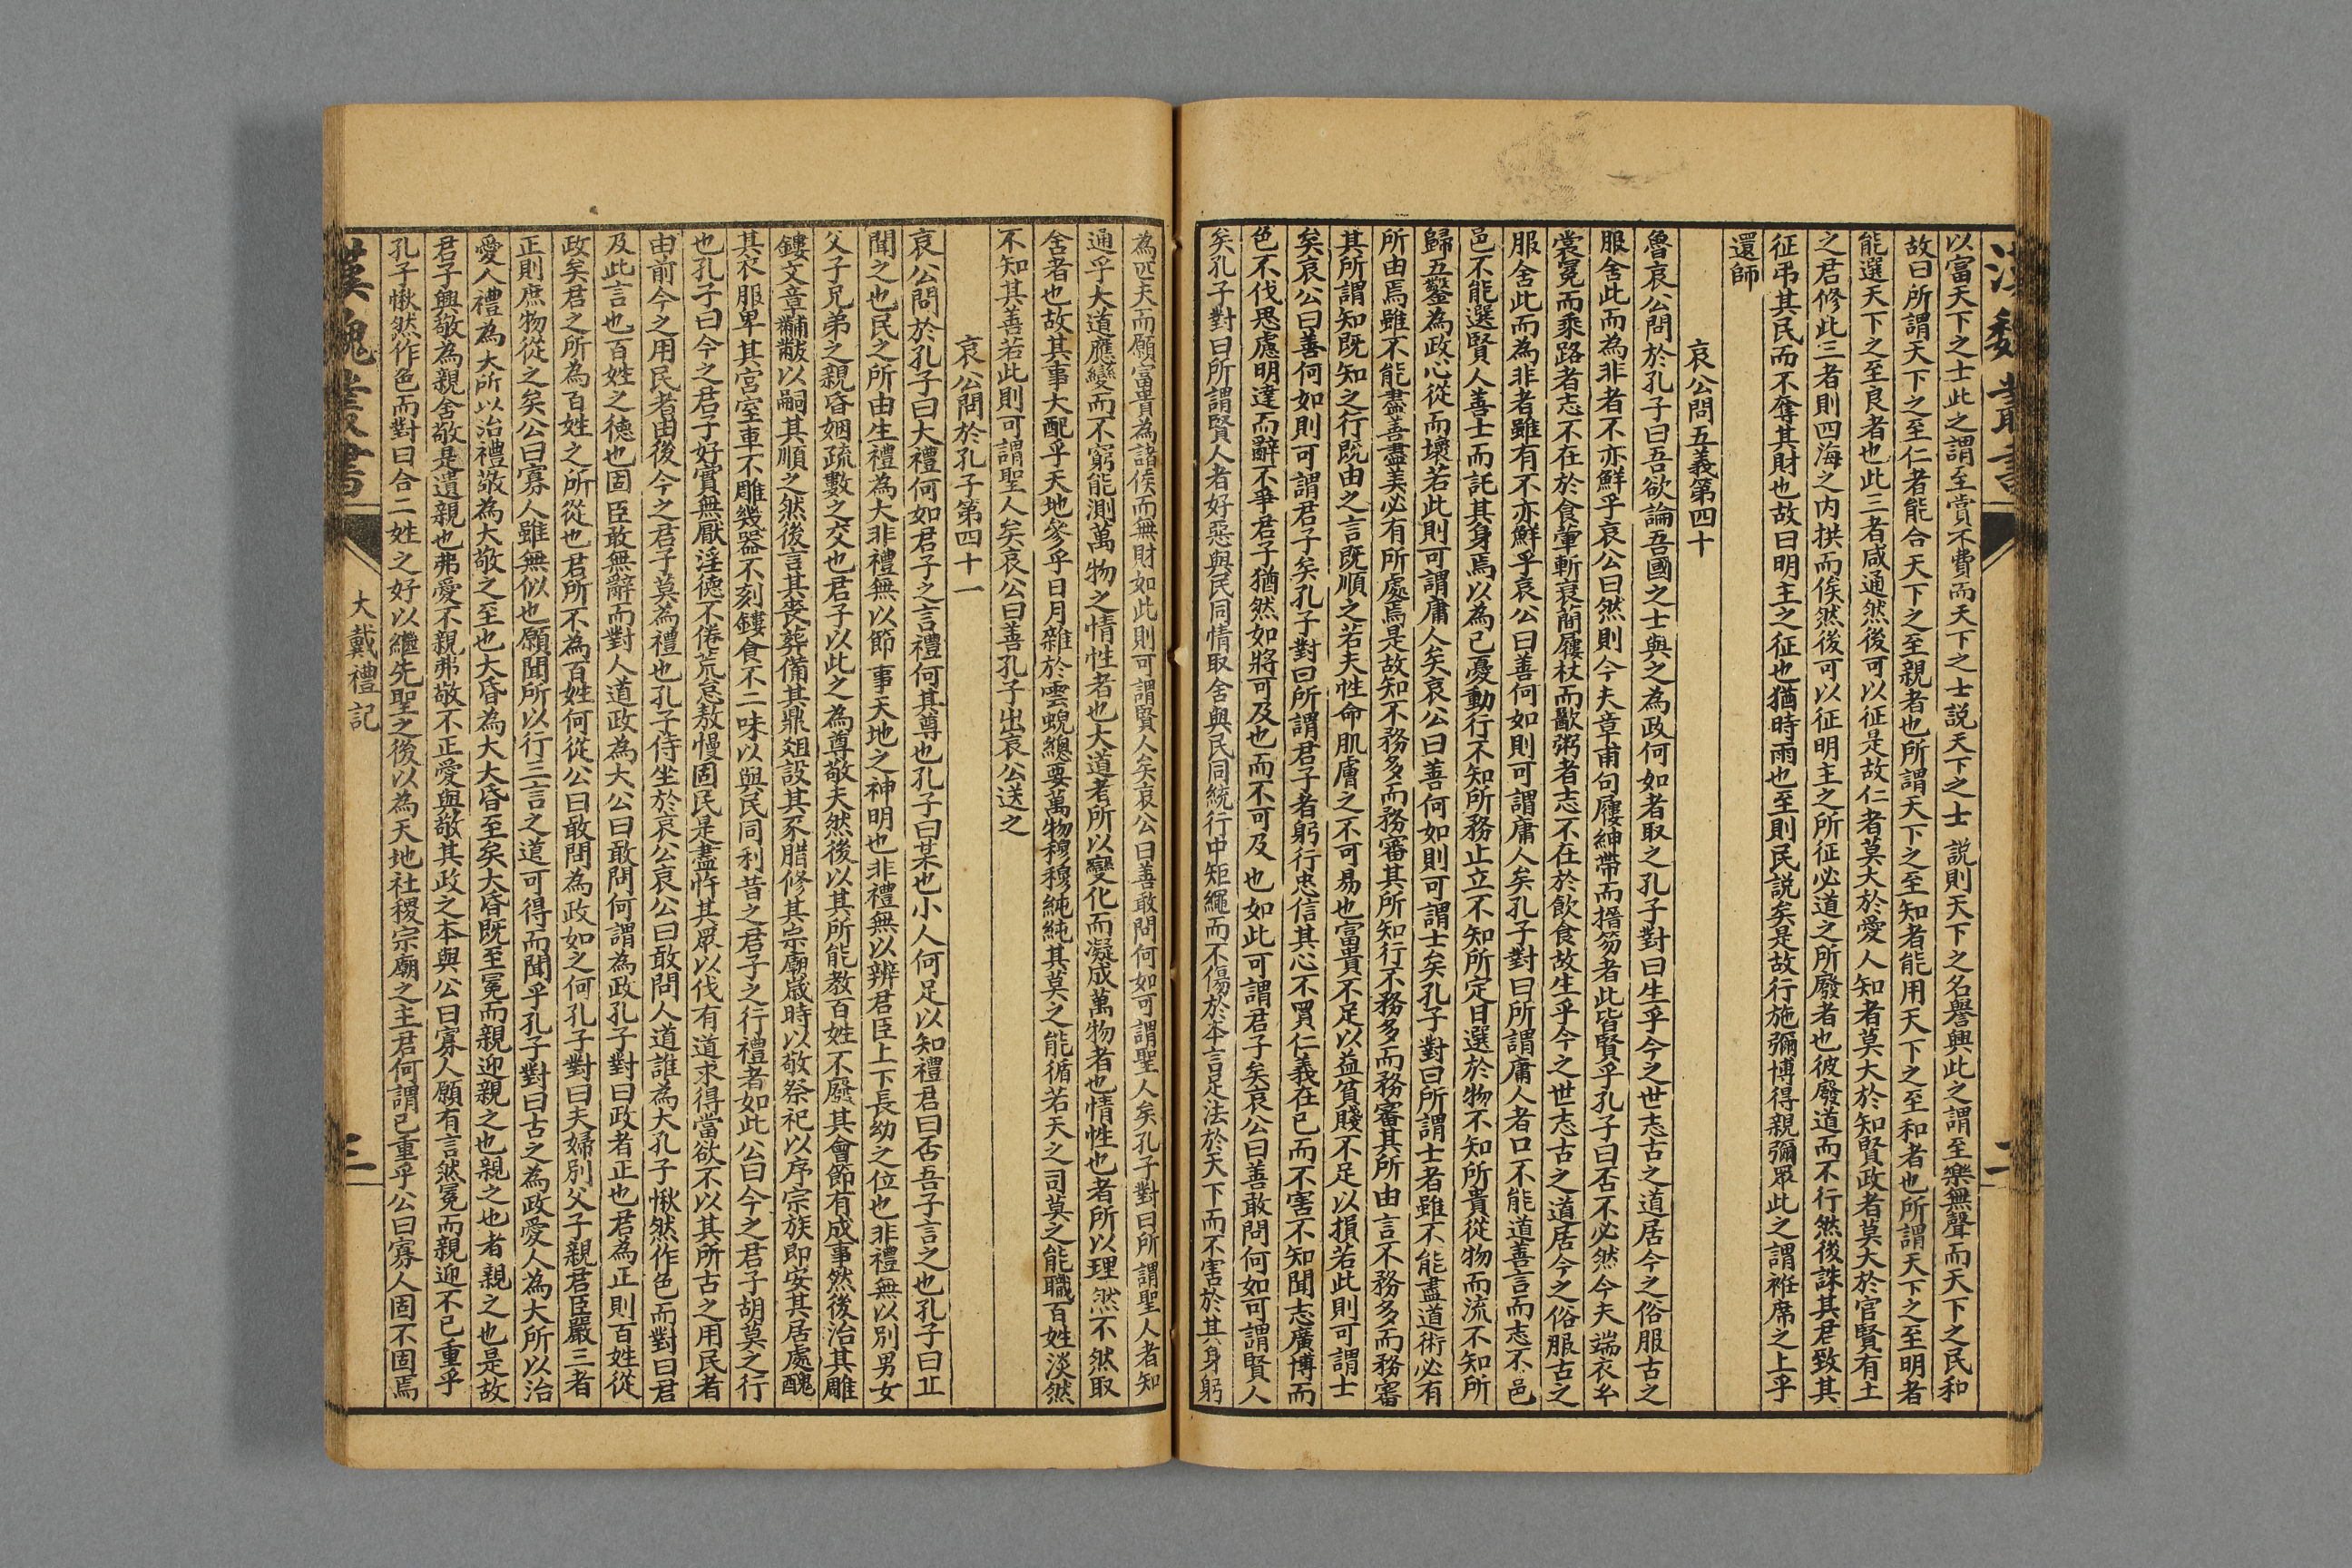 漢魏叢書
二
以富天下之士此之謂至賞不費而天下之士説天下之士説則天下之名譽興此之謂至樂無聲而天下之民和
故曰所謂天下之至仁者能合天下之至親者也所謂天下之至知者能用天下之至和者也所謂天下之至明者
能選天下之至良者也此三者咸通然後可以征是故仁者莫大於愛人知者莫大於知賢政者莫大於官賢有土
之君修此三者則四海之内拱而俟然後可以征明主之所征必道之所廢者也彼廢道而不行然後誅其君致其
征弔其民而不奪其財也故曰明主之征也猶時雨也至則民説矣是故行施彌博得親彌眾此之謂袵席之上乎
還師
哀公問五義第四十
魯哀公問於孔子曰吾欲論吾國之士與之為政何如者取之孔子對曰生乎今之世志古之道居今之俗服古之
服舍此而為非者不亦鮮乎哀公曰然則今夫章甫句屨紳帶而搢笏者此皆賢乎孔子曰否不必然今夫端衣𤣥
裳冕而乘路者志不在於食葷斬衰蕳屨杖而歠粥者志不在於飲食故生乎今之世志古之道居今之俗服古之
服舍此而為非者雖有不亦鮮乎哀公曰善何如則可謂庸人矣孔子對曰所謂庸人者口不能道善言而志不邑
邑不能選賢人善士而託其身焉以為己憂動行不知所務止立不知所定日選於物不知所貴從物而流不知所
歸五鑿為政心從而壞若此則可謂庸人矣哀公曰善何如則可謂士矣孔子對曰所謂士者雖不能盡道術必有
所由焉雖不能盡善盡美必有所處焉是故知不務多而務審其所知行不務多而務審其所由言不務多而務審
其所謂知既知之行既由之言既順之若夫性命肌膚之不可易也富貴不足以益貧賤不足以損若此則可謂士
矣哀公曰善何如則可謂君子矣孔子對曰所謂君子者躬行忠信其心不買仁義在己而不害不知聞志廣博而
色不伐思慮明達而辭不爭君子猶然如將可及也而不可及也如此可謂君子矣哀公曰善敢問何如可謂賢人
矣孔子對曰所謂賢人者好惡與民同情取舍與民同統行中矩繩而不傷於本言足法於天下而不害於其身躬
為匹夫而願富貴為諸侯而無財如此則可謂賢人矣哀公曰善敢問何如可謂聖人矣孔子對曰所謂聖人者知
通乎大道應變而不窮能測萬物之情性者也大道者所以變化而凝成萬物者也情性也者所以理然不然取
舍者也故其事大配乎天地參乎日月雜於雲蜺總要萬物穆穆純純其莫之能循若天之司莫之能職百姓淡然
不知其善若此則可謂聖人矣哀公曰善孔子出哀公送之
哀公問於孔子第四十一
哀公問於孔子曰大禮何如君子之言禮何其尊也孔子曰某也小人何足以知禮君曰否吾子言之也孔子曰丘
聞之也民之所由生禮為大非禮無以節事天地之神明也非禮無以辨君臣上下長幼之位也非禮無以別男女
父子兄弟之親昏姻疏數之交也君子以此之為尊敬夫然後以其所能教百姓不廢其會節有成事然後治其雕
鏤文章黼黻以嗣其順之然後言其喪葬備其鼎俎設其豕腊修其宗廟歲時以敬祭祀以序宗族即安其居處醜
其衣服卑其宮室車不雕幾器不刻鏤食不二味以與民同利昔之君子之行禮者如此公曰今之君子胡莫之行
也孔子曰今之君子好賞無厭淫德不倦荒怠敖慢固民是盡忤其眾以伐有道求得當欲不以其所古之用民者
由前今之用民者由後今之君子莫為禮也孔子侍坐於哀公哀公曰敢問人道誰為大孔子愀然作色而對曰君
及此言也百姓之德也固臣敢無辭而對人道政為大公曰敢問何謂為政孔子對曰政者正也君為正則百姓從
政矣君之所為百姓之所從也君所不為百姓何從公曰敢問為政如之何孔子對曰夫婦別父子親君臣嚴三者
正則庶物從之矣公曰寡人雖無似也願聞所以行三言之道可得而聞乎孔子對曰古之為政愛人為大所以治
愛人禮為大所以治禮敬為大敬之至也大昏為大大昏至矣大昏既至冕而親迎親之也親之也者親之也是故
君子興敬為親舍敬是遺親也弗愛不親弗敬不正愛與敬其政之本與公曰寡人願有言然冕而親迎不已重乎
孔子愀然作色而對曰合二姓之好以繼先聖之後以為天地社稷宗廟之主君何謂已重乎公曰寡人固不固焉
漢魏叢書
大戴禮記
三